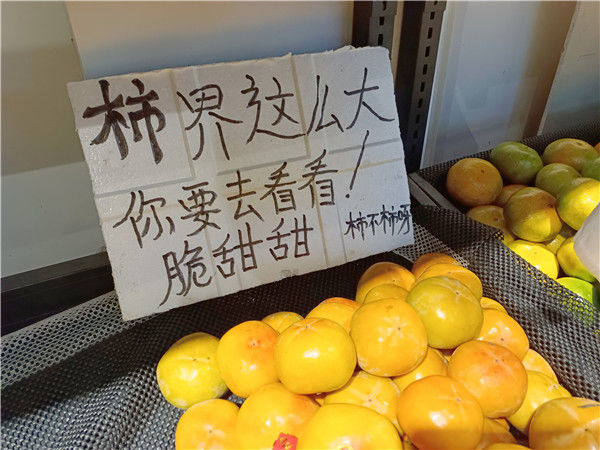 柿界这么大
你要去看看!
脆甜甜
柿不柿呀